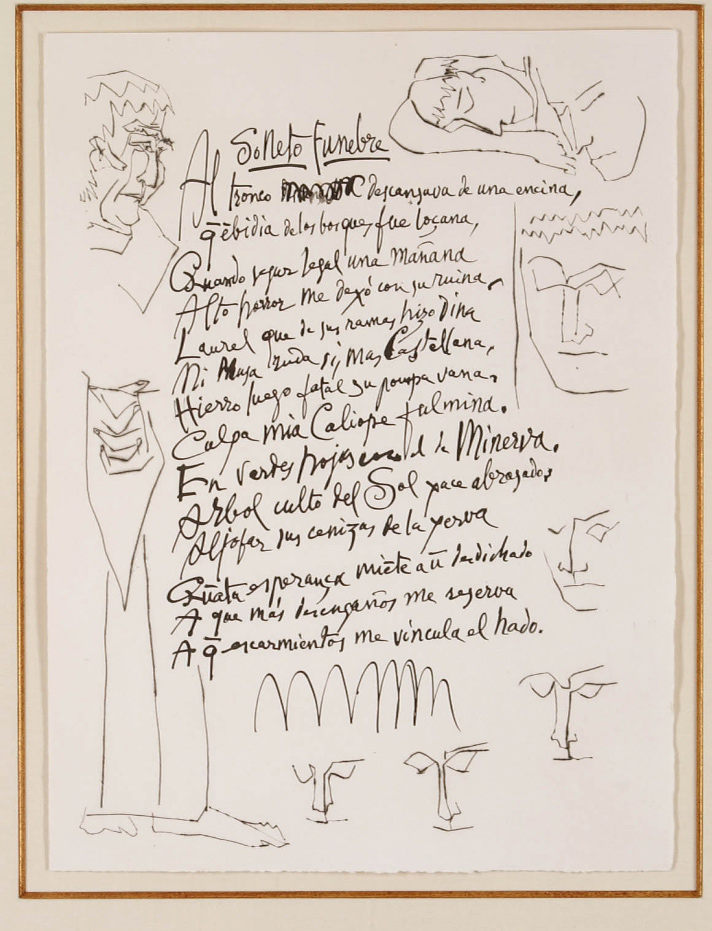 Soneto Funebre
Al tronco descansava de una encina,
q̄ ebidia de los bosques fue loçana,
Quando segur legal una mañana
Alto horror me dexó con su ruina.
Laurel que de sus ramas hizo dina
Mi Musa ruda sí, mas Castellana,
Hierro luego fatal su pompa vana.
Culpa mia Caliope fulmina.
En verdes hojas el de Minerva.
Arbol culto del Sol yace abrasado,
Aljofar sus cenizas de la yerva
Quāta esperança miēte a ū desdichado
A que más desengaños me reserva
A q̄ escarmientos me vincula el hado.